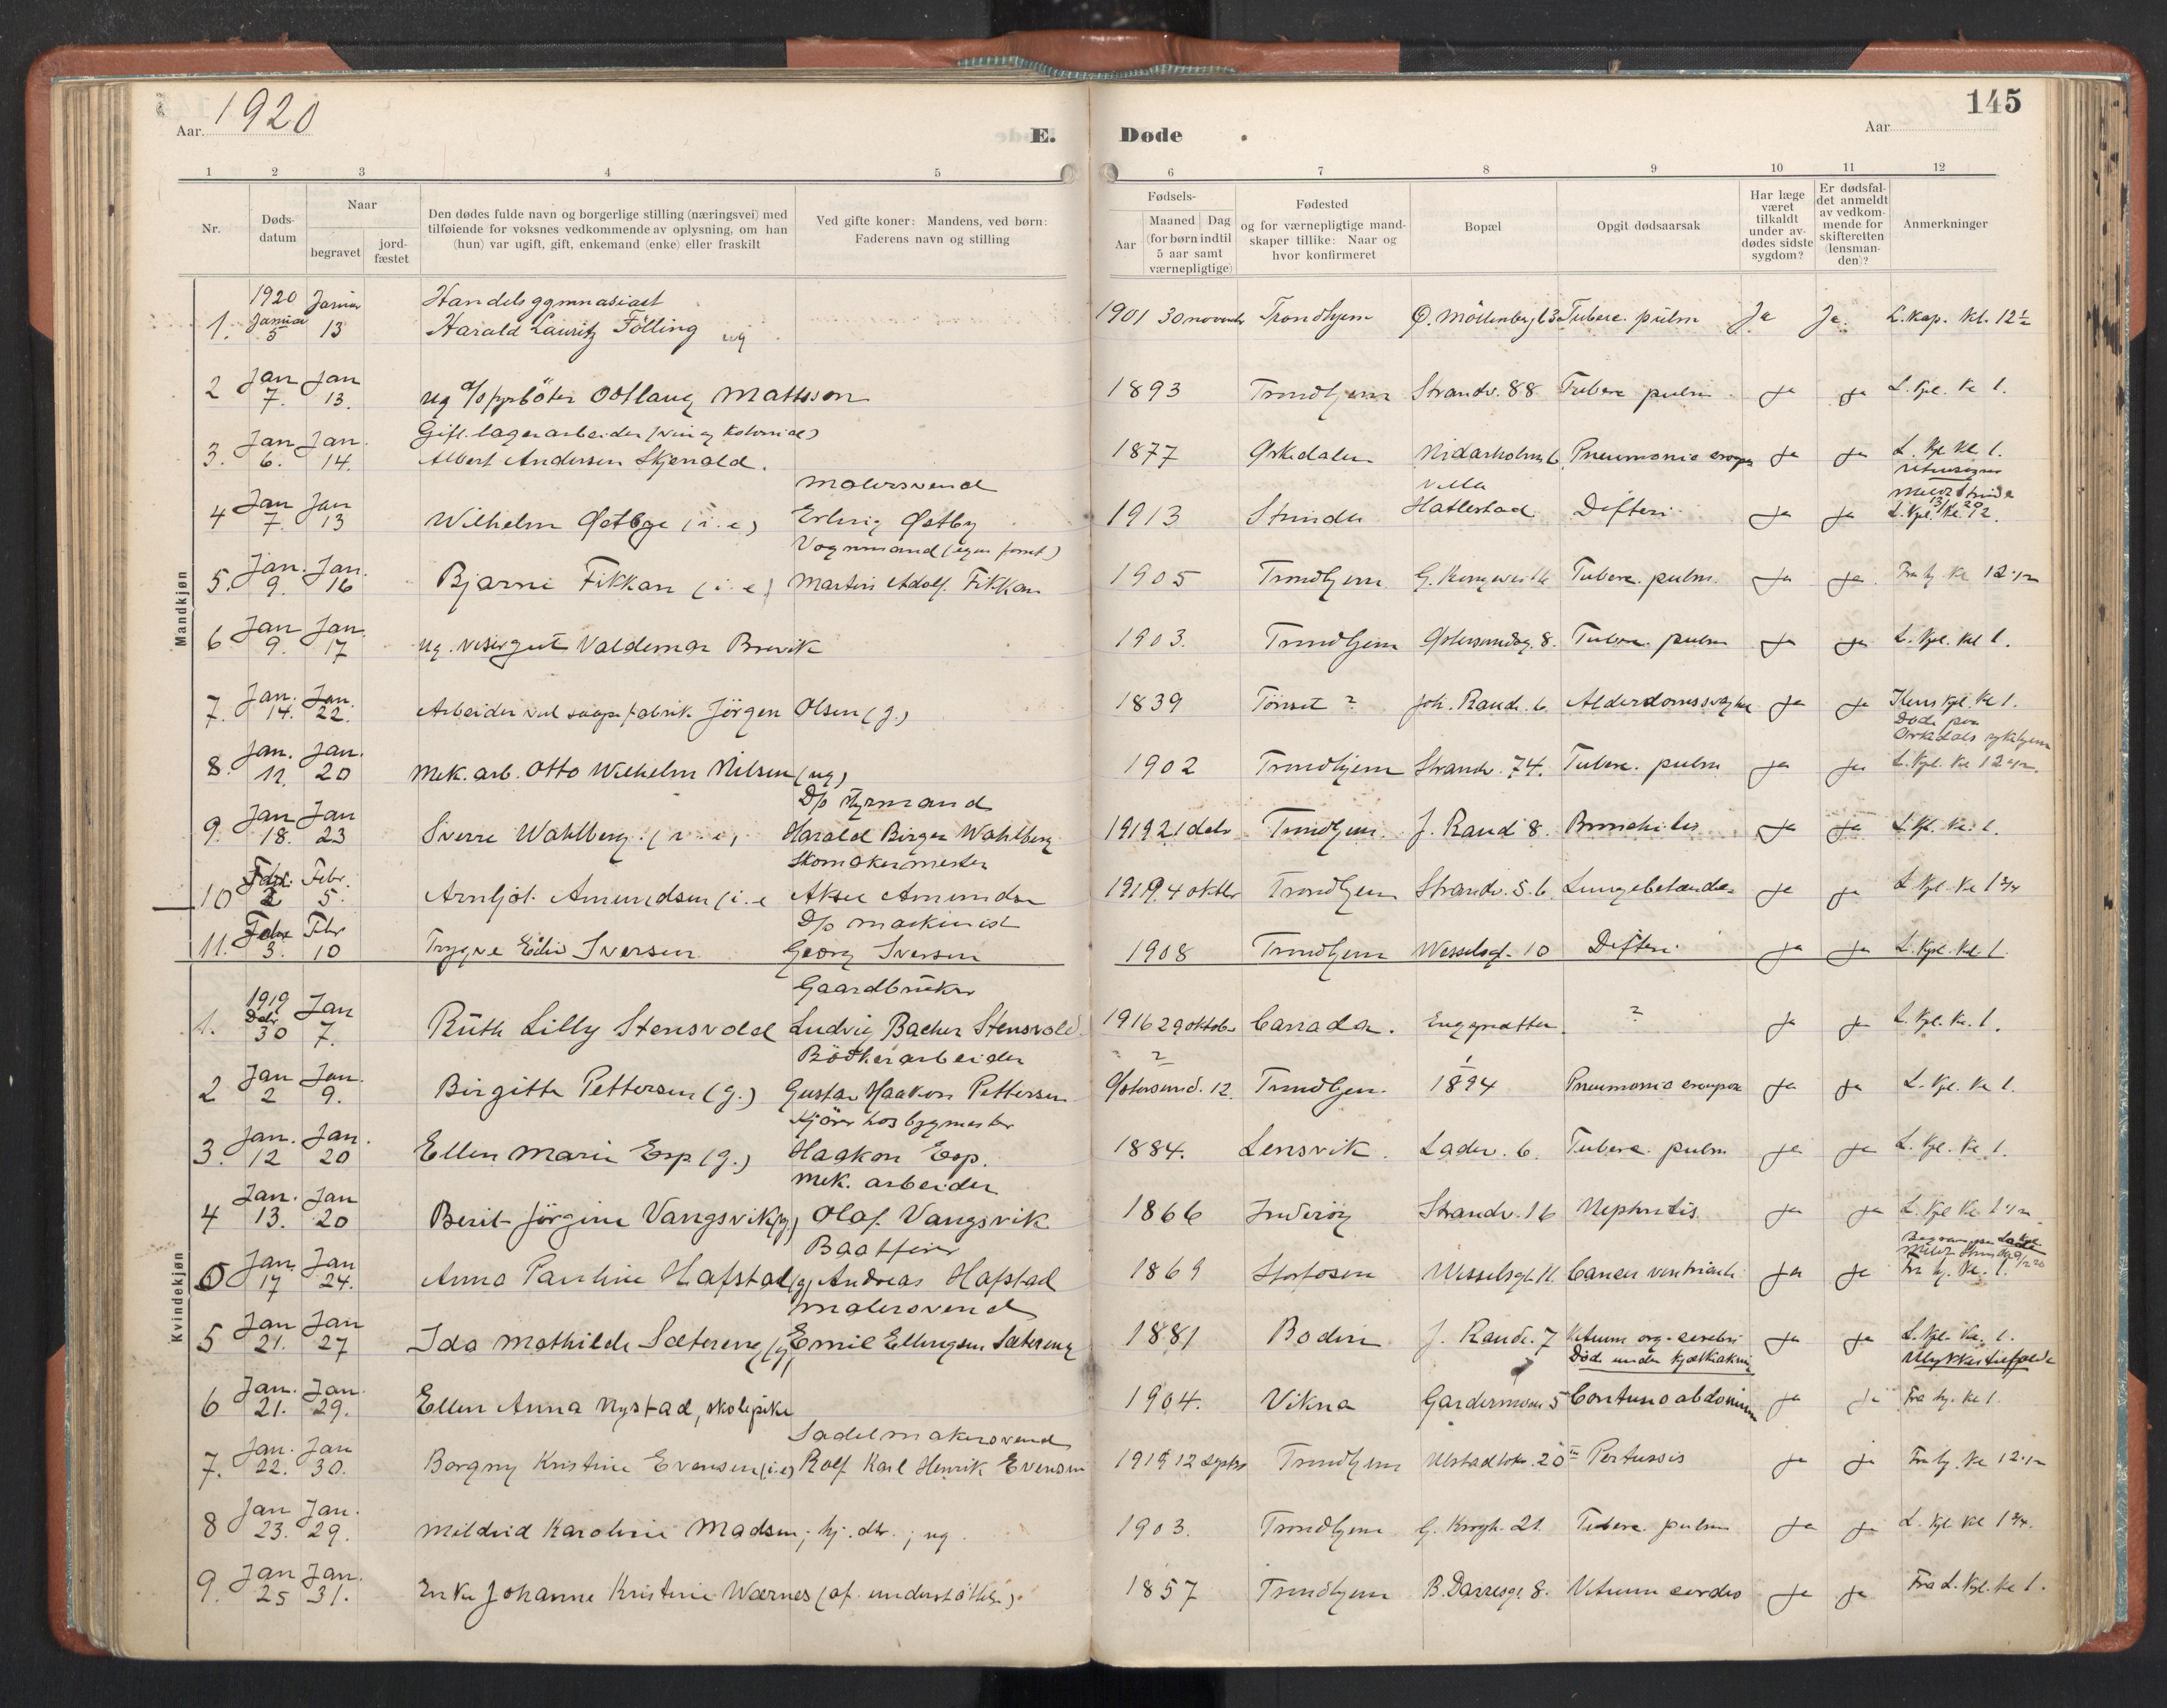 Aar. 1920
E. Døde
Aar
145
1 2 3 4 5 6 7 8 9 10 11 12
Nr.
Døds-
datum
Naar
begravet
jord-
fæstet
Den dødes fulde navn og borgerlige stilling (næringsvei) med
tilføiende for voksnes vedkommende av oplysning, om han
(hun) var ugift, gift, enkemand (enke) eller fraskilt
Ved gifte koner: Mandens, ved børn:
Faderens navn og stilling
Fødsels-
Aar
Maaned Dag
(for børn indtil
5 aar samt
værnepligtige)
Fødested
og for værnepligtige mand-
skaper tillike: Naar og
hvor konfirmeret
Bopæl
Opgit dødsaarsak
Har læge
været
tilkaldt
under av-
dødes sidste
sygdom?
Er dødsfal-
det anmeldt
av vedkom-
mende for
skifteretten
(lensman-
den)?
Anmerkninger
Mandkjøn
1920 Januar Handelsgymnasiast
1. Januar 5 13 Harald Lauritz Fölling ug 1901 30 novembr Trondhjem Ø. Möllenbergt 3a Tuberc. pulm Ja Ja. L. Kap. Kl. 12 1/2
2 Jan 7. Jan 13. ug Oddlaug Mattsson 1893 Trondhjem Strandv. 88 Tuberc pulm ja ja L. Kpl. Kl 1.
Gift. lagerarbeider (vin og kolonial)
3. Jan 6. Jan. 14. Albert Andersen Skjenald. 1877 Orkedalen Nidarholms 6 Pneumonia croupos ja ja L. Kpl Kl 1.
Malersvend Villa
4 Jan 7. Jan 13 Wilhelm Østbye (i.e) Erling Østby 1913 Strinda Hatlestad Difteri ja ja L. Kpl. Kl. 12.
Vognmand
5. Jan. 9. Jan. 16 Bjarne Fikkan (i.e) Martin Adolf Fikkan 1905 Trondhjem Tuberc. pulm. ja ja. Fra hj. Kl 12 1/2
6 Jan 9. Jan. 17 ug. visergut Valdemar Brevik 1903. Trondhjem Østersundsg. 8. Tuberc. pulm ja ja L. Kpl. Kl 1.
7. Jan. 14. Jan. 22. Arbeider ved saapefabrik Jörgen Olsen (g.) 1839 Tönset ? Joh. Rande. 6 Alderdomssvækkelse ja ja Kl 1.
Døde paa
Orkdals sykehjem
8. Jan. 11. Jan. 20 Mek. arb. Otto Wilhelm Nilsen (ug) 1902 Trondhjem Strandv. 74. Tuberc. pulm ja ja L. Kpl. Kl 12 1/2.
D/s Styrmand
9. Jan 18. Jan 23 Sverre Wahlberg (i.e) Harald Birger Wahlberg 1919 21 debr Trondhjem. J. Rand 8. Bronchitis ja ja L. Kpl. Kl. 1.
Skomakermester
10 Febr. 2 Febr. 5. Arnljot Amundsen (i.e Aksel Amundsen 1919. 4 oktbr Trondhjem Strandv. 5. b. Lungebetændelse ja ja L. Kpl. Kl 1 3/4
D/s Maskinist
11. Febr 3. Febr 10 Trygve Edin Iversen Georg Iversen 1908 Trondhjem Wesselsgt. 10 Difteri ja ja L. Kpl. Kl. 1.
Kvindekjøn
1919 Gaardbruker
1. Debr 30 Jan 7. Ruth Lilly Stensvold Ludvig Bacher Stensvold 1916 29 oktober Canada. Engsmatten ? ja ja L. Kpl. Kl. 1.
Bödkerarbeider
2 Jan 2 Jan. 9. Birgitte Pettersen (g.) Gustav Haakon Pettersen Østersund. 12. Trondhjem 1894 Pneumonia croupos ja ja L. Kpl. Kl 1.
Kjører hos bygmester
3. Jan. 12 Jan. 20 Ellen Marie Esp (g.) Haakon Esp. 1884. Lensvik. Ladev. 6. Tuberc. pulm ja ja L. Kpl. Kl 1.
Mek. arbeider
4 Jan. 13. Jan 20 Berit Jörgine Vangsvik (g) Olaf Vangsvik 1866 Inderöy Strandv. 16 Nephritis ja ja L. Kpl Kl 1 1/2
5 Jan. 17 Jan 24. Anna Pauline Hafstad (g) Andreas Hafstad 1869 Storfosen Wesselsgt. 11. Cancer ventriculi ja ja Fra hj. Kl. 1.
Malersvend
5 Jan 21. Jan 27 Ida Mathilde Sætereng (g) Emil Ellingsen Sætereng 1881 Bodin J. Rande. 7 Vitium org. cerebri ja ja L. Kpl. Kl. 1.
Ulykkestilfælde
6 Jan. 21. Jan. 29. Ellen Anna Nystad, skolepike 1904. Vikna Gardermoens 5 Contusio abdominis ja ja Fra hj. Kl 1.
Sadelmakersvend
7. Jan. 22. Jan 30. Borgny Kristine Evensen (i.e) Rolf Karl Henrik Evensen 1919 12 septbr Trondhjem Ulstadløkv. 20 Pertussis ja ja Fra hj. Kl 12 1/2
8 Jan 23. Jan. 29. Mildrid Karoline Madsen; hj. dtr.; ug. 1903. Trondhjem G. Krogh. 21. Tuberc. pulm ja ja L. Kpl Kl 1 3/4.
9. Jan 25 Jan. 31. Enke Johanne Kristine Wærnes (af. understöttelse). 1857 Trondhjem B. Darresgt. 8. Vitium cordis ja ja Fra L. Kpl. Kl 1.